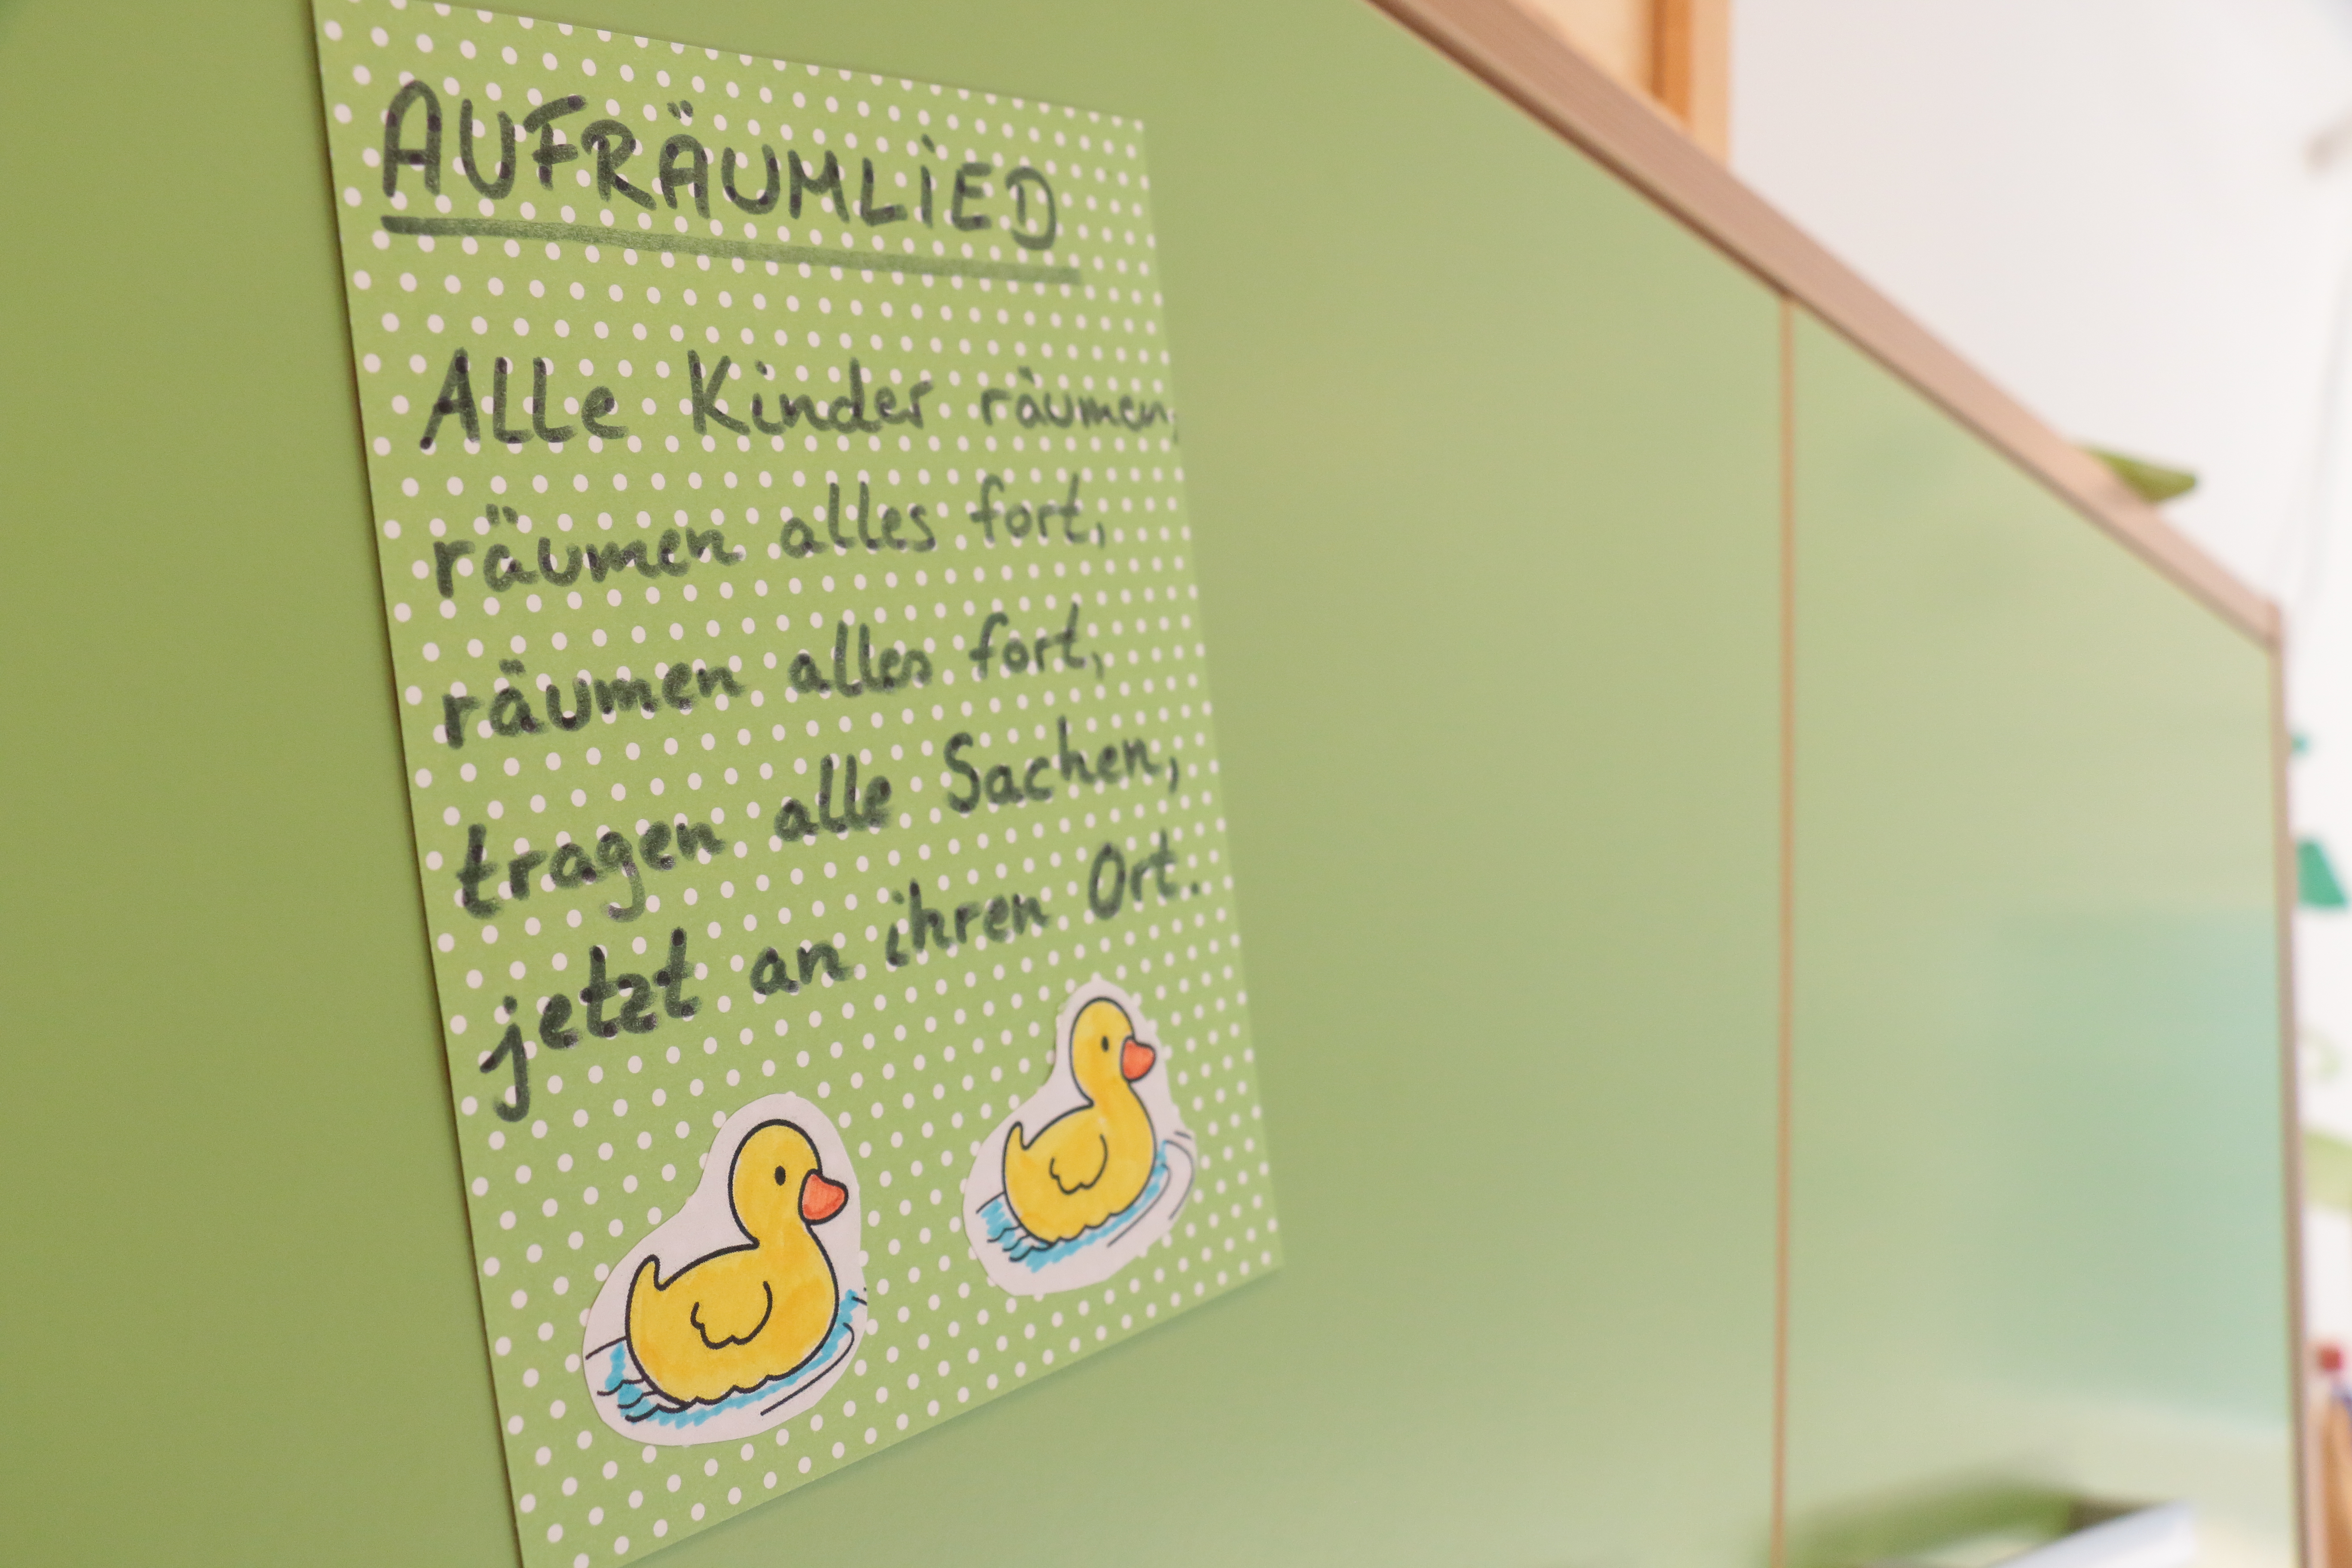 AUFRÄUMLiED
Alle Kinder räumen,
räumen alles fort,
räumen alles fort,
tragen alle Sachen,
jetzt an ihren Ort.